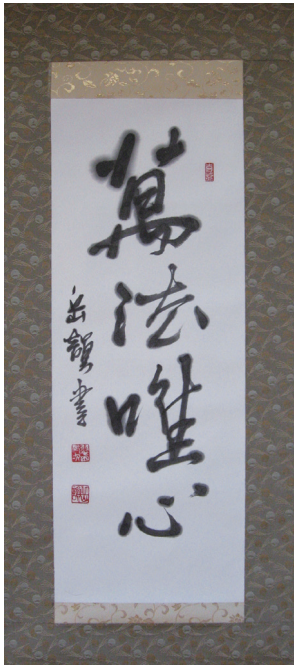 萬法唯心
岳韻書